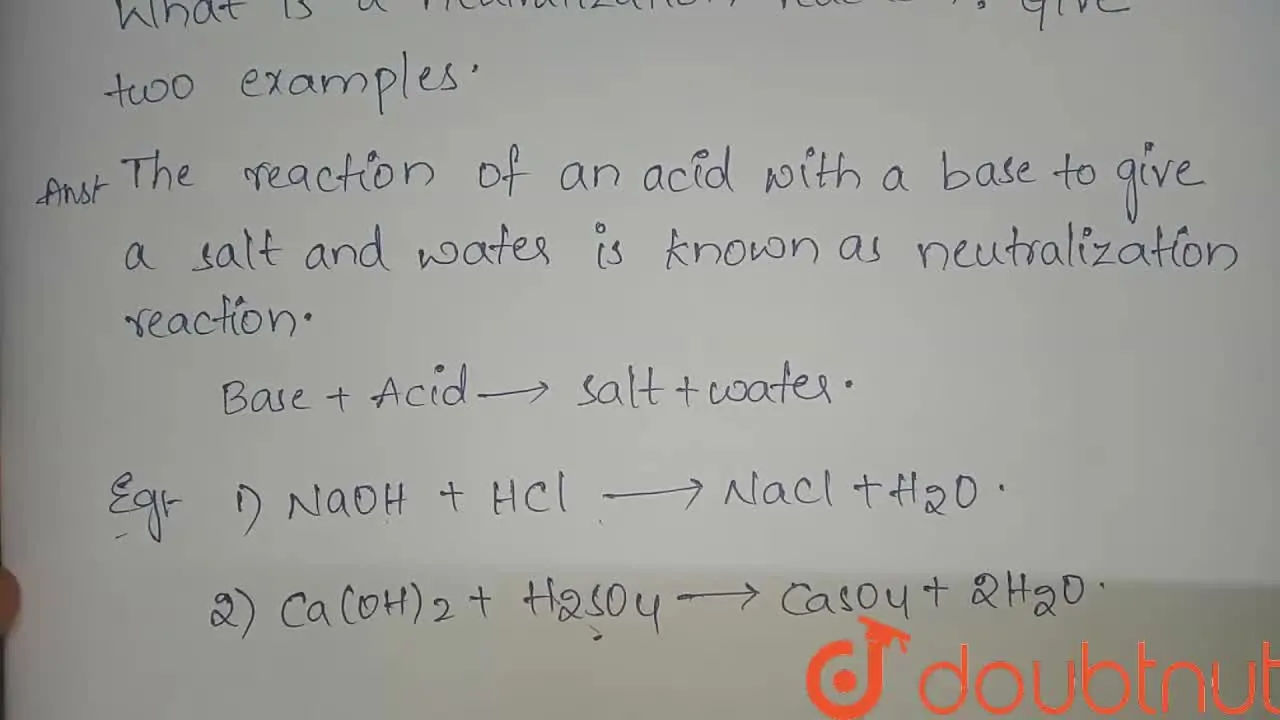 What is a neutralization reaction? give
two examples.
Ans:- The reaction of an acid with a base to give
a salt and water is known as neutralization
reaction.
Base + Acid → salt + water.
Eg:- 1) NaOH + HCl → NaCl + H2O.
2) Ca(OH)2 + H2SO4 → CaSO4 + 2H2O.
doubtnut